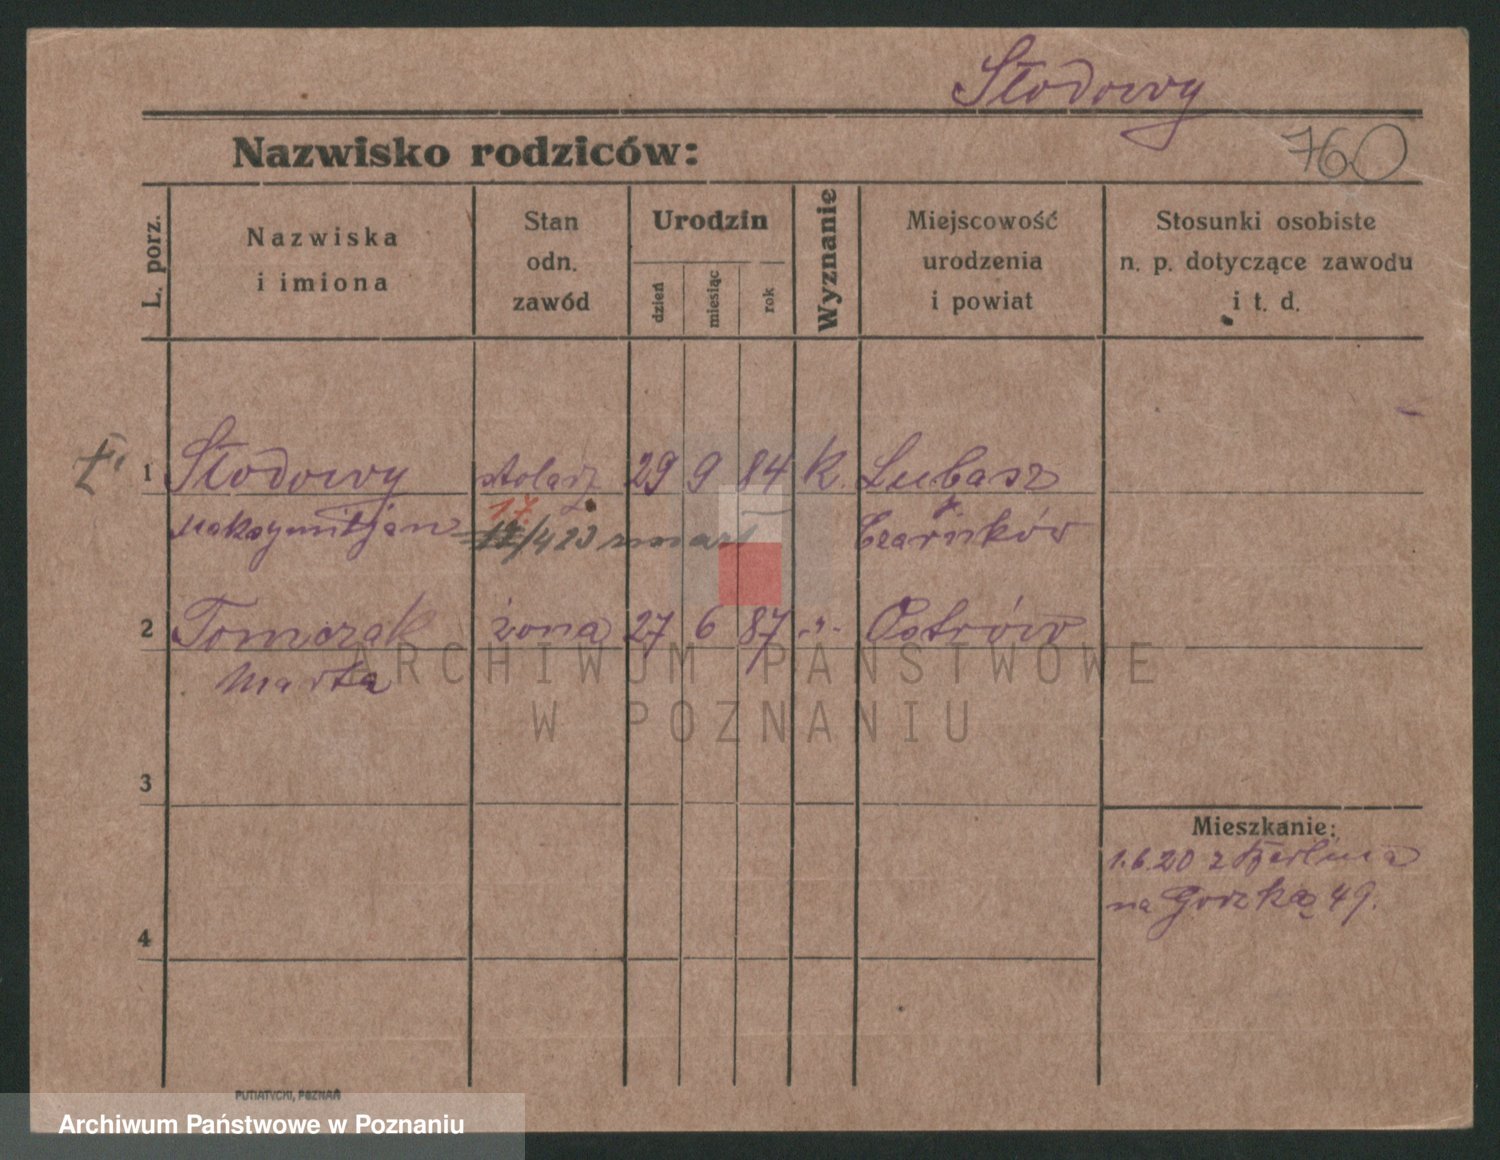 Słodowy
Nazwisko rodziców:
760
L. porz.
Nazwiska
i imiona
Stan
odn.
zawód
Urodzin
dzień
miesiąc
rok
Wyznanie
Miejscowość
urodzenia
i powiat
Stosunki osobiste
n. p. dotyczące zawodu
i t. d.
1 Słodowy stolarz 29 9 84 k. Lubasz
Maksymiljan 17. /4 23 zmarł Czarnków
2 Tomczak żona 27 6 87 -"- Ostrów
Marta
ARCHIWUM PAŃSTWOWE
W POZNANIU
3
Mieszkanie:
1.6.20 z Berlina
na 49.
4
PUTIATYCKI, POZNAŃ
Archiwum Państwowe w Poznaniu